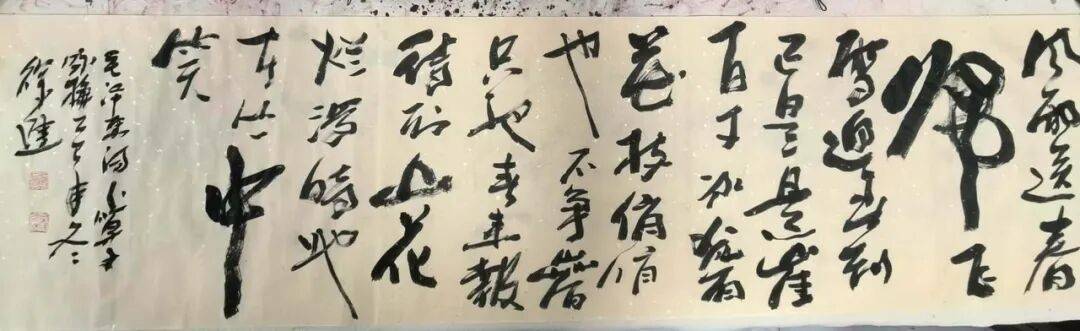 风雨送春
归飞
雪迎春到
已是悬崖
百丈冰犹有
花枝俏俏
也不争春
只把春来報
待到山花
烂漫時她
在丛中
笑
毛泽东词卜算子
咏梅 年冬
徐進